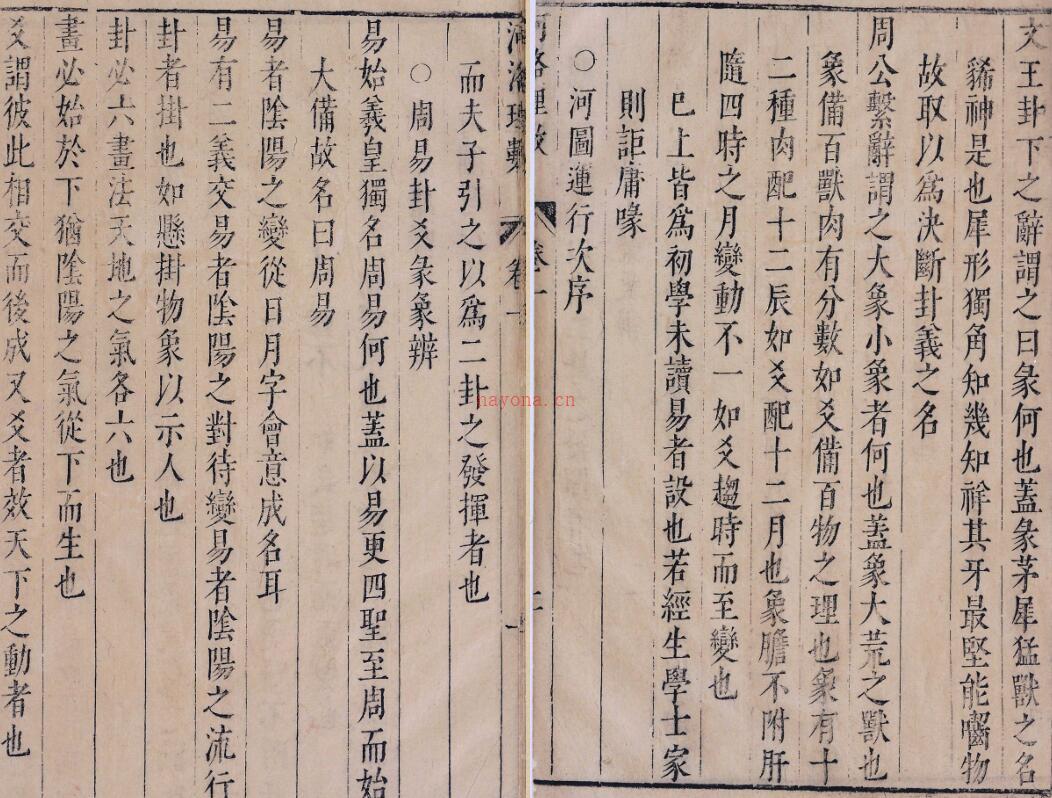 文王卦下之辭謂之曰彖何也蓋彖茅犀猛獸之名
豨神是也犀形獨角知幾知祥其牙最堅能嚙物
故取以爲決斷卦義之名
周公繫辭謂之大象小象者何也蓋象大荒之獸也
象備百獸肉有分數如爻備百物之理也象有十
二種肉配十二辰如爻配十二月也象膽不附肝
隨四時之月變動不一如爻趨時而至變也
已上皆爲初學未讀易者設也若經生學士家
則詎庸喙
○河圖運行次序
河洛理數 卷一 二
河洛理數 卷一 一
而夫子引之以爲二卦之發揮者也
○周易卦爻彖象辨
易始羲皇獨名周易何也蓋以易更四聖至周而始
大備故名曰周易
易者陰陽之變從日月字會意成名耳
易有二義交易者陰陽之對待變易者陰陽之流行
卦者掛也如懸掛物象以示人也
卦必六畫法天地之氣各六也
畫必始於下猶陰陽之氣從下而生也
爻謂彼此相交而後成又爻者效天下之動者也
nayona.cn